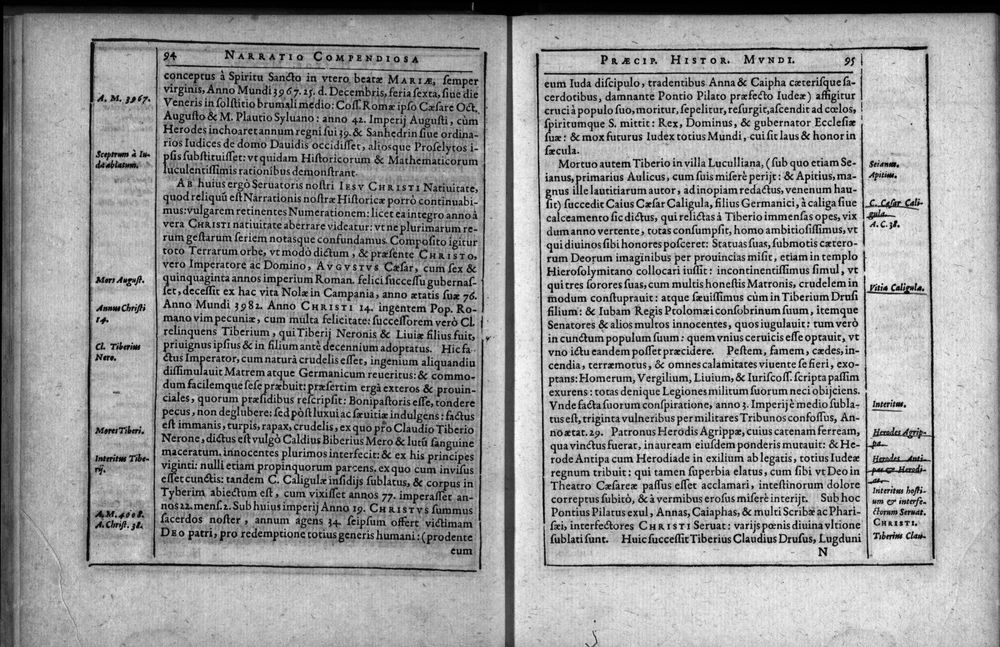 94 NARRATIO COMPENDIOSA
conceptus à Spiritu Sancto in vtero beatæ MARIÆ, semper
virginis, Anno Mundi 3967. 25. d. Decembris, feria sexta, siue die
Veneris in solstitio brumali medio: Coss. Romæ ipso Cæsare Oct.
Augusto & M. Plautio Syluano: anno 42. Imperij Augusti, cùm
Herodes inchoaret annum regni sui 39. & Sanhedrin siue ordina-
rios Iudices de domo Dauidis occidisset, aliosque Proselytos i-
psis substituisset: vt quidam Historicorum & Mathematicorum
luculentissimis rationibus demonstrant.
AB huius ergò Seruatoris nostri IESV CHRISTI Natiuitate,
quod reliquũ est Narrationis nostræ Historicæ porrò continuabi-
mus: vulgarem retinentes Numerationem: licet ea integro anno à
vera CHRISTI natiuitate aberrare videatur: vt ne plurimarum re-
rum gestarum seriem notasque confundamus. Composito igitur
toto Terrarum orbe, vt modò dictum, & præsente CHRISTO,
vero Imperatore ac Domino, AVGVSTVS Cæsar, cum sex &
quinquaginta annos imperium Roman. felici successu gubernas-
set, decessit ex hac vita Nolæ in Campania, anno ætatis suæ 76.
Anno Mundi 3982. Anno CHRISTI 14. ingentem Pop. Ro-
mano vim pecuniæ, cum multa felicitate: successorem verò Cl.
relinquens Tiberium, qui Tiberij Neronis & Liuiæ filius fuit,
priuignus ipsius & in filium antè decennium adoptatus. Hic fa-
ctus Imperator, cum natura crudelis esset, ingenium aliquandiu
dissimulauit Matrem atque Germanicum reueritus: & commo-
dum facilemque sese præbuit: præsertim ergà exteros & prouin-
ciales, quorum præsidibus rescripsit: Boni pastoris esse, tondere
pecus, non deglubere: sed pòst luxui ac sæuitiæ indulgens: factus
est immanis, turpis, rapax, crudelis, ex quo pro Claudio Tiberio
Nerone, dictus est vulgò Caldius Biberius Mero & lutũ sanguine
maceratum. innocentes plurimos interfecit: & ex his principes
viginti: nulli etiam propinquorum parcens. ex quo cum inuisus
esset cunctis: tandem C. Caligulæ insidijs sublatus, & corpus in
Tyberim abiectum est, cum vixisset annos 77. imperasset an-
nos 22. mens. 2. Sub huius imperij Anno 19. CHRISTVS summus
sacerdos noster, annum agens 34. seipsum offert victimam
DEO patri, pro redemptione totius generis humani: (prodente
eum
A. M. 3967.
Sceptrum à Iu-
da ablatum.
Mors August.
Annus Christi
14.
Cl. Tiberius
Nero.
Mores Tiberi.
Interitus Tibe-
rij.
A. M. 4008.
A. Christ. 38.
PRÆCIP. HISTOR. MVNDI. 95
eum Iuda discipulo, tradentibus Anna & Caipha cæterisque sa-
cerdotibus, damnante Pontio Pilato præfecto Iudeæ) affigitur
cruci à populo suo, moritur, sepelitur, resurgit, ascendit ad cœlos,
spiritumque S. mittit: Rex, Dominus, & gubernator Ecclesiæ
suæ: & mox futurus Iudex totius Mundi, cui sit laus & honor in
sæcula.
Mortuo autem Tiberio in villa Luculliana, (sub quo etiam Se-
ianus, primarius Aulicus, cum suis miserè perijt: & Apitius, ma-
gnus ille lautitiarum autor, ad inopiam redactus, venenum hau-
sit) succedit Caius Cæsar Caligula, filius Germanici, à caliga siue
calceamento sic dictus, qui relictas à Tiberio immensas opes, vix
dum anno vertente, totas consumpsit, homo ambitiosissimus, vt
qui diuinos sibi honores posceret: Statuas suas, submotis cætero-
rum Deorum imaginibus per prouincias misit, etiam in templo
Hierosolymitano collocari iussit: incontinentissimus simul, vt
qui tres sorores suas, cum multis honestis Matronis, crudelem in
modum constuprauit: atque sæuissimus cùm in Tiberium Drusi
filium: & Iubam Regis Ptolomæi consobrinum suum, itemque
Senatores & alios multos innocentes, quos iugulauit: tum verò
in cunctum populum suum: quem vnius ceruicis esse optauit, vt
vno ictu eandem posset præcidere. Pestem, famem, cædes, in-
cendia, terræmotus, & omnes calamitates viuente se fieri, exo-
ptans: Homerum, Vergilium, Liuium, & Iuriscoss. scripta passim
exurens: totas denique Legiones militum suorum neci obijciens.
Vnde facta suorum conspiratione, anno 3. Imperij è medio subla-
tus est, triginta vulneribus per militares Tribunos confossus, An-
no ætat. 29. Patronus Herodis Agrippæ, cuius catenam ferream,
qua vinctus fuerat, in auream eiusdem ponderis mutauit: & He-
rode Antipa cum Herodiade in exilium ablegatis, totius Iudeæ
regnum tribuit: qui tamen superbia elatus, cum sibi vt Deo in
Theatro Cæsareæ passus esset acclamari, intestinorum dolore
correptus subitò, & à vermibus erosus miserè interijt. Sub hoc
Pontius Pilatus exul, Annas, Caiaphas, & multi Scribæ ac Phari-
sæi, interfectores CHRISTI Seruat: varijs pœnis diuina vltione
sublati sunt. Huic successit Tiberius Claudius Drusus, Lugduni
N
Seianus.
Apitius.
C. Cæsar Cali-
gula.
A. C. 38.
Vitia Caligulæ.
Interitus.
Herodes Agrip-
pa.
Herodes Anti-
pas & Herodi-
as.
Interitus hosti-
um & interfe-
ctorum Seruat.
CHRISTI.
Tiberius Clau-